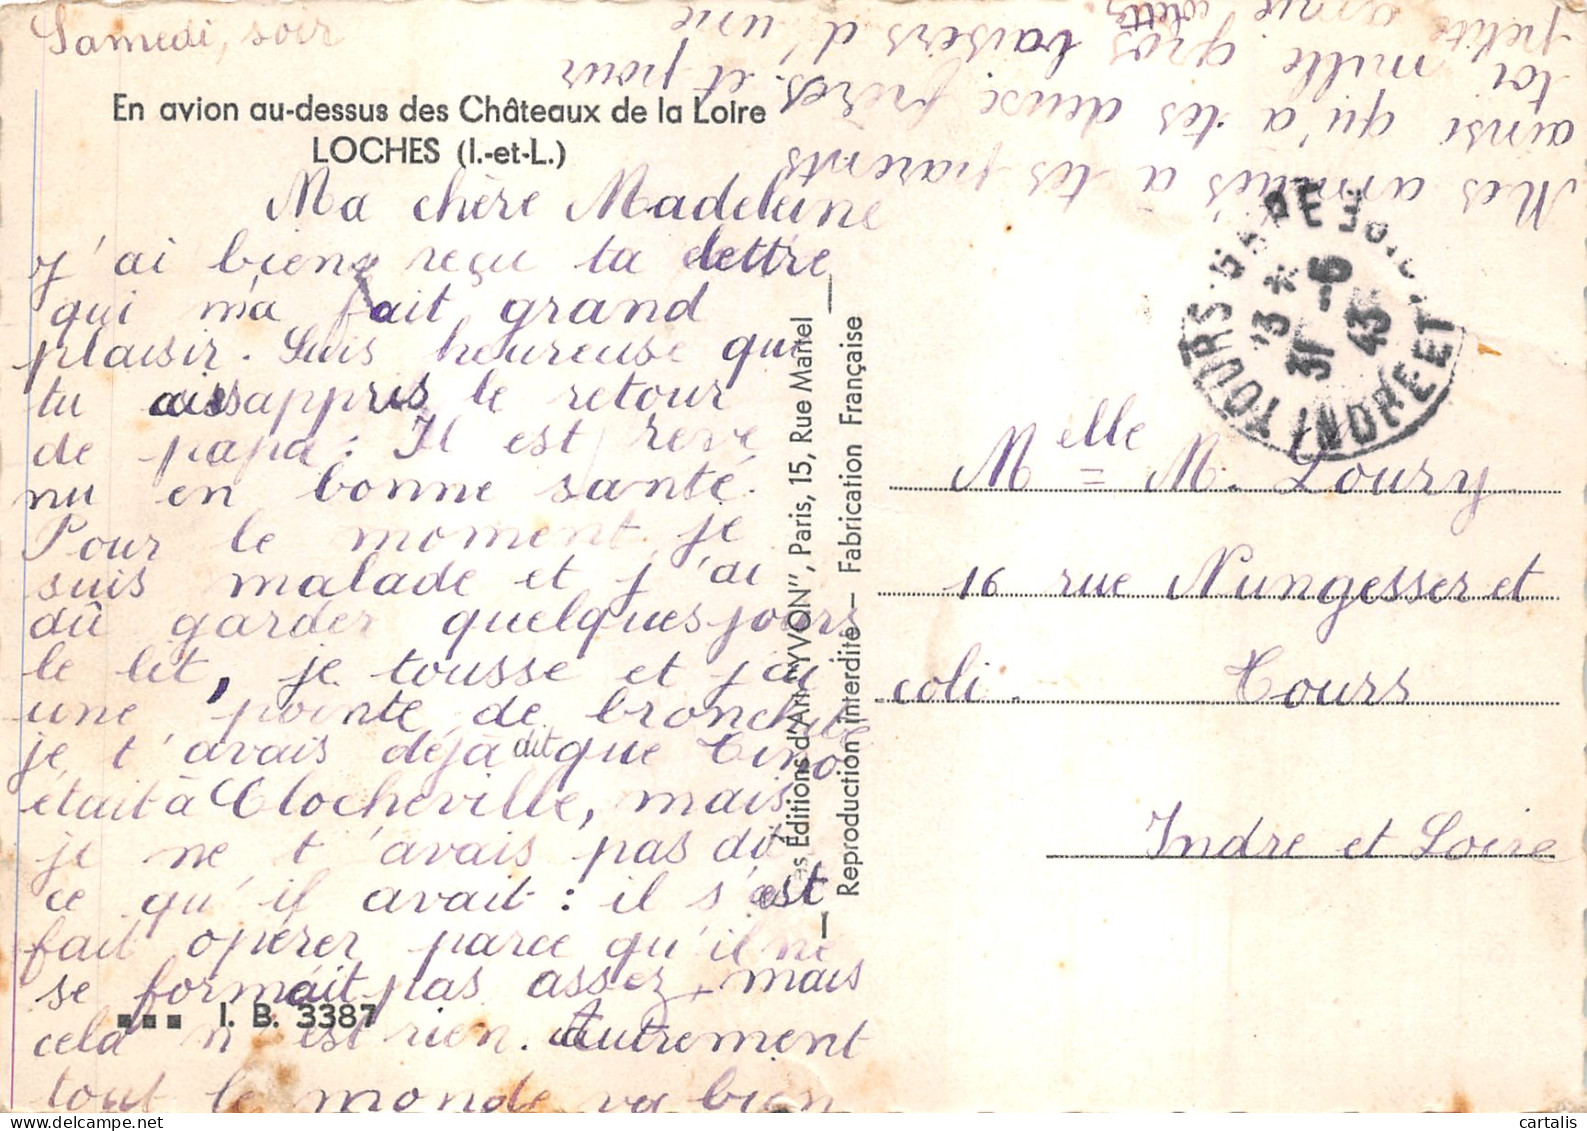 Samedi, soir
En avion au-dessus des Châteaux de la Loire
LOCHES (I.-et-L.)
Ma chère Madeleine
j'ai bien reçu ta lettre
qui m'a fait grand
plaisir. Suis heureuse que
tu aies appris le retour
de papa. Il est reve
nu en bonne santé.
Pour le moment je
suis malade et j'ai
dû garder quelques jours
le lit, je tousse et j'ai
une pointe de bronchite
je t'avais déjà dit que Tino
était à Clocheville, mais
je ne t'avais pas dit
ce qu'il avait : il s'est
fait opérer parce qu'il ne
se formait pas assez, mais
cela n'est rien. Autrement
tout le monde va bien
I. B. 3387
Mes amitiés à tes parents
ainsi qu'à tes deux frères. et pour
toi, mille gros baisers d'une
petite amie Colette
Éditions d'Art "YVON", Paris, 15, Rue Martel
Reproduction interdite — Fabrication Française
TOURS-GARE
13 * 31 -5 43
INDRE ET
Melle M. Loury
16 rue Nungesser et
coli. Tours
Indre et Loire
cartalis